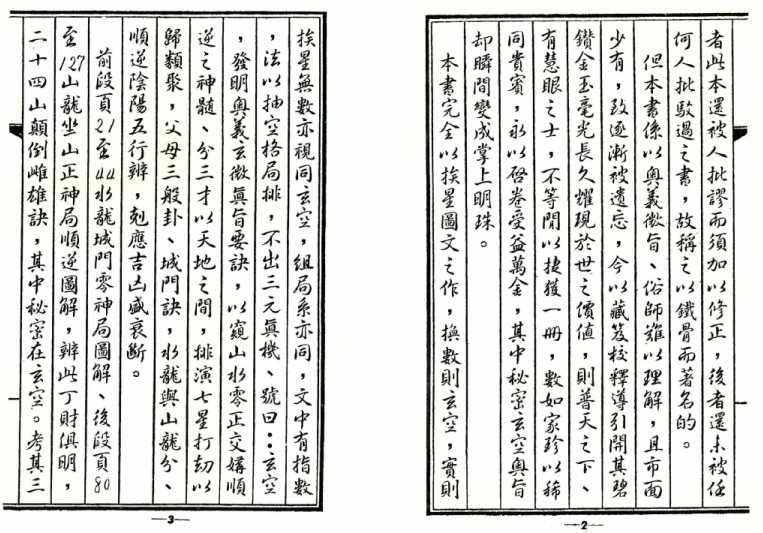 者此本還被人批謬而須加以修正，後者還未被任
何人批駁過之書，故稱之以鐵骨而著名的。
但本書係以奧義微旨、俗師難以理解，且市面
少有，致逐漸被遺忘，今以藏笈校釋導引開其碧
鑽金玉毫光長久耀現於世之價值，則普天之下、
有慧眼之士，不等閒以捷獲一冊，數如家珍以稀
同貴賓，永以啓卷受益萬金，其中秘密玄空奧旨
却瞬間變成掌上明珠。
本書完全以挨星圖文之作，換數則玄空，實則
—2—
挨星無數亦視同玄空，組局系亦同，文中有指數
，法以抽空格局排，不出三元眞機、號曰：玄空
，發明奧義玄微眞旨要訣，以窺山水零正交媾順
逆之神髓、分三才以天地之間，排演七星打劫以
歸類聚，父母三般卦、城門訣，水龍與山龍分、
順逆陰陽五行辨，剋應吉凶盛衰斷。
前段頁21至44水龍城門零神局圖解、後段頁80
至127山龍坐山正神局順逆圖解，辨此丁財俱明，
二十四山顛倒雌雄訣，其中秘密在玄空。考其三
—3—